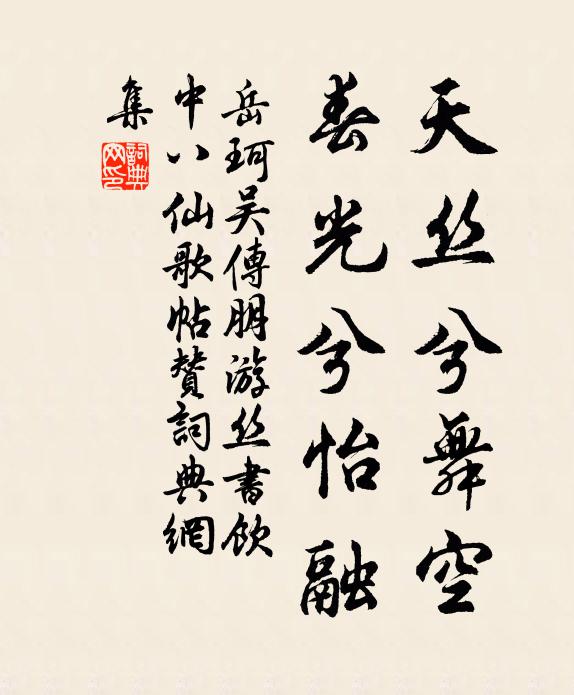 天丝兮舞空
春光兮怡融
岳珂吴傅朋游丝书饮
中八仙歌帖赞詞典網
集
詞典
网印